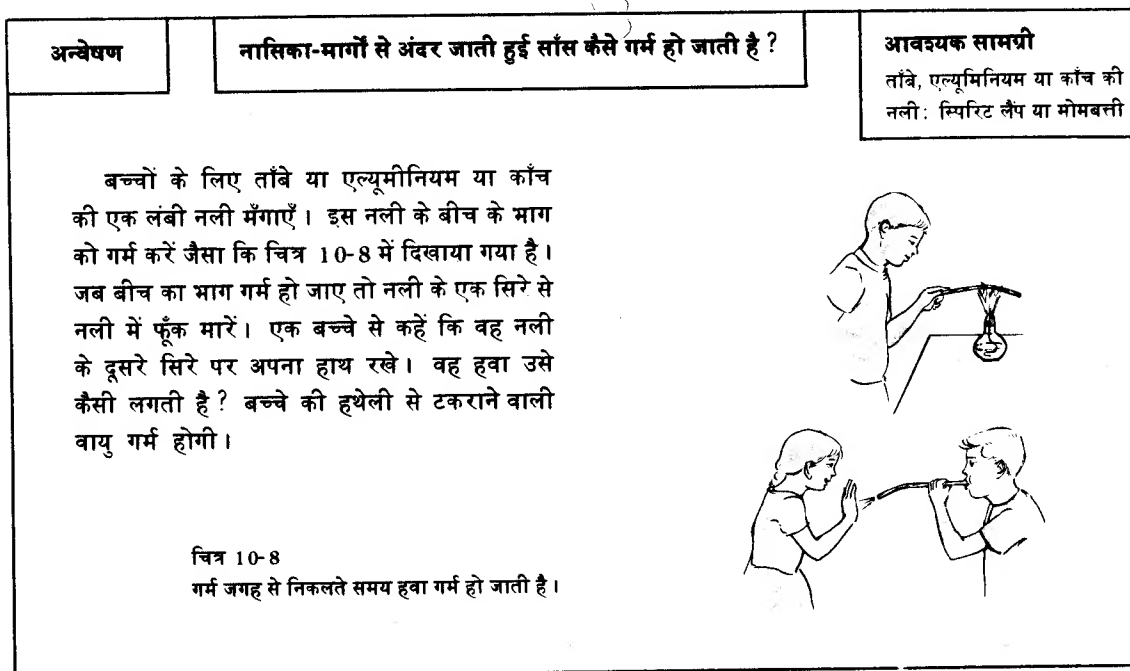 अन्वेषण
नासिका-मार्गों से अंदर जाती हुई साँस कैसे गर्म हो जाती है ?
आवश्यक सामग्री
ताँबे, एल्यूमिनियम या काँच की
नली: स्पिरिट लैंप या मोमबत्ती
बच्चों के लिए ताँबे या एल्यूमीनियम या काँच
की एक लंबी नली मँगाएँ। इस नली के बीच के भाग
को गर्म करें जैसा कि चित्र 10-8 में दिखाया गया है।
जब बीच का भाग गर्म हो जाए तो नली के एक सिरे से
नली में फूँक मारें। एक बच्चे से कहें कि वह नली
के दूसरे सिरे पर अपना हाथ रखे। वह हवा उसे
कैसी लगती है ? बच्चे की हथेली से टकराने वाली
वायु गर्म होगी।
चित्र 10-8
गर्म जगह से निकलते समय हवा गर्म हो जाती है।